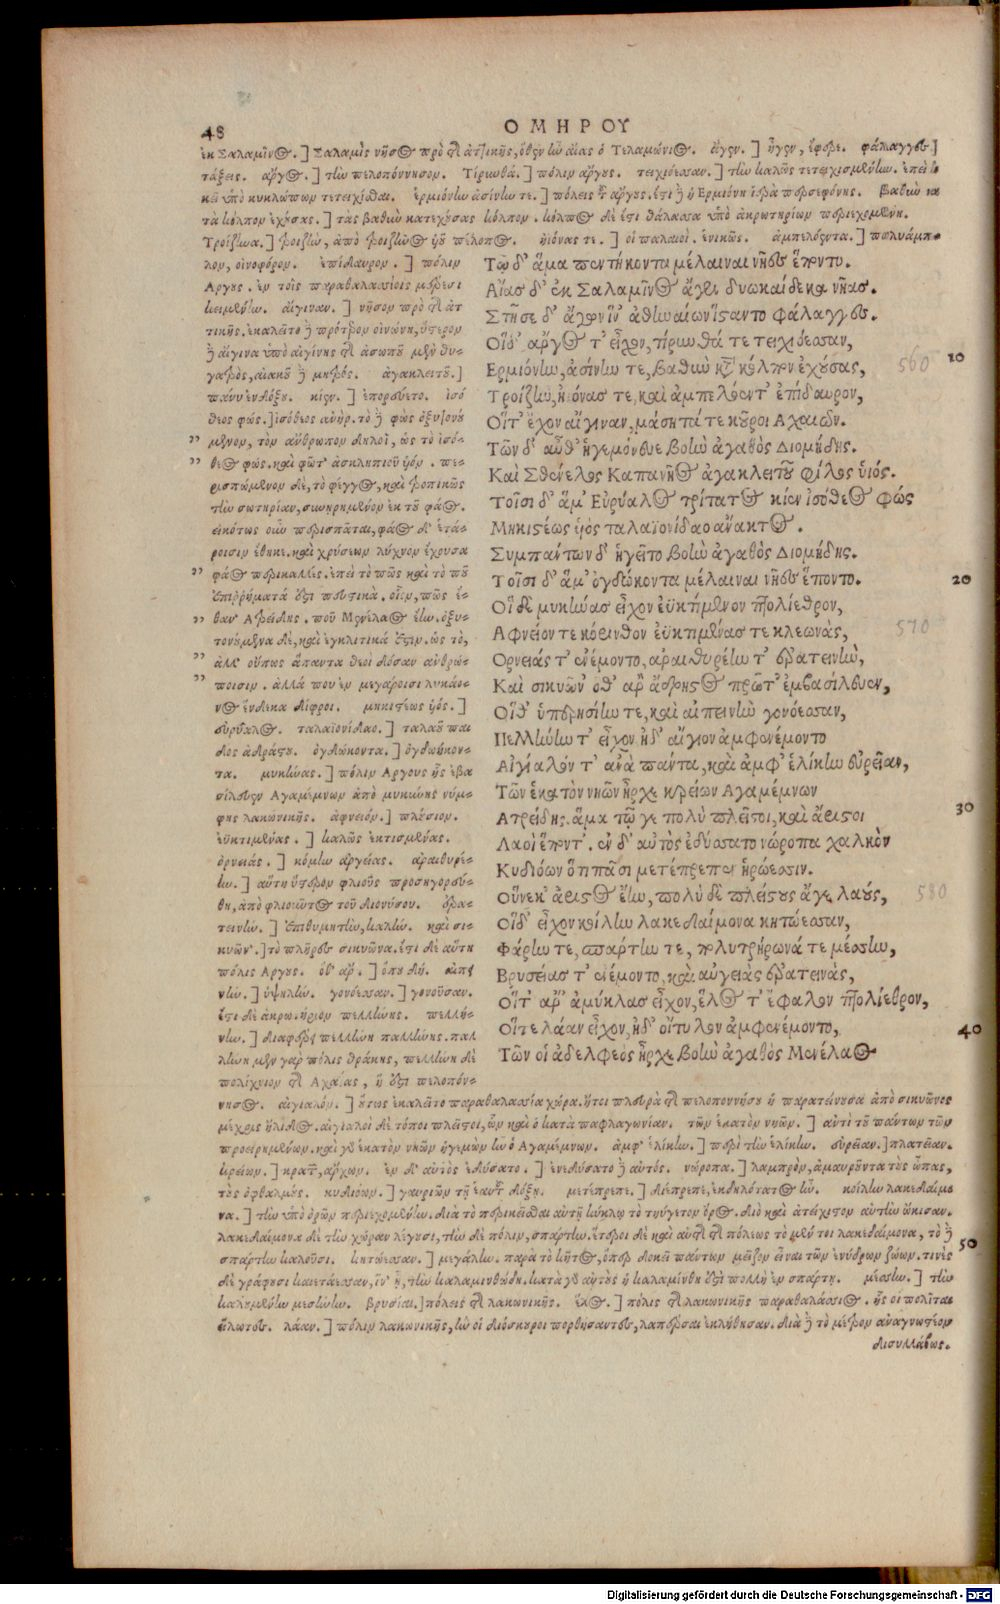 48
ΟΜΗΡΟΥ
ἐκ Σαλαμῖνος.] Σαλαμὶς νῆσος πρὸ τῆς ἀττικῆς, ὅθεν ἦν αἴας ὁ Τελαμώνιος. ἄγεν.] ἦγεν, ἔφερε. φάλαγγες.]
τάξεις. ἄργος.] τὴν πελοπόννησον. Τίρυνθα.] πόλιν ἄργους. τειχιόεσσαν.] τὴν καλῶς τετειχισμένην. ἐπεὶ
κεῖ ὑπὸ κυκλώπων τετειχίσθαι. ἑρμιόνην ἀσίνην τε.] πόλεις τοῦ ἄργους. ἔστι δὲ ἡ Ἑρμιόνη ἱερὰ περσεφόνης. βαθὺν κα
τὰ κόλπον ἐχούσας.] τὰς βαθὺν κατεχούσας κόλπον. κόλπος δέ ἐστι θάλασσα ὑπὸ ἀκρωτηρίων περιεχομένη.
Τροίζηνα.] τροιζὴν, ἀπὸ τροιζῆνος τοῦ πέλοπος. ἠϊόνας τε.] οἱ παλαιοὶ. ἑνικῶς. ἀμπελόεντα.] πολυάμπε
λον, οἰνοφόρον. ἐπίδαυρον.] πόλιν
Ἄργους. ἐν τοῖς παραθαλασσίοις μέρεσι
κειμένην. αἴγιναν.] νῆσον πρὸ τῆς ἀτ
τικῆς. ἐκαλεῖτο δὲ πρότερον οἰνώνη, ὕστερον
δὲ αἴγινα ὑπὸ αἰγίνης τῆς ἀσωποῦ μὲν θυ-
γατρὸς, αἰακοῦ δὲ μητρός. ἀγακλειτοῦ.]
πάνυ ἐνδόξου. κίεν.] ἐπορεύετο. ἰσό
θεος φώς.] ἰσόθεος ἀνήρ. τὸ δὲ φὼς ὀξυτονού
μενον, τὸν ἄνθρωπον δηλοῖ, ὡς τὸ ἰσό-
θεος φώς. καὶ φῶτ' ἀσκληπιοῦ υἱόν. πε-
ρισπώμενον δὲ, τὸ φέγγος, καὶ τροπικῶς
τὴν σωτηρίαν, συνῃρημένον ἐκ τοῦ φάος.
εἰκότως οὖν περισπᾶται, φάος δ' ἑτά-
ροισιν ἔθηκε. καὶ χρύσεον λύχνον ἔχουσα
φάος περικαλλές. ἐπεὶ τὸ πῶς καὶ τὸ ποῦ
ἐπιρρήματά ἐστι πευστικά. οἷον, πῶς ἔ-
θαν' Ἀτρείδης. ποῦ Μενέλαος ἔην. ὀξυ-
τονούμενα δὲ, καὶ ἐγκλιτικά ἐστιν. ὡς τὸ,
ἀλλ' οὔπως ἅπαντα θεοὶ δόσαν ἀνθρώ-
ποισιν. ἀλλά που ἐν μεγάροισι λυκάο-
νος ἕνδεκα δίφροι. μηκιστέως υἱός.]
εὐρύαλος. ταλαϊονίδαο.] ταλαοῦ παι
δὸς ἀδράστου. ὀγδώκοντα.] ὀγδοήκον-
τα. μυκήνας.] πόλιν Ἄργους ἧς ἐβα
σίλευεν Ἀγαμέμνων ἀπὸ μυκήνης νύμ-
φης λακωνικῆς. ἀφνειόν.] πλούσιον.
ἐϋκτιμένας.] καλῶς ἐκτισμένας.
ὀρνειάς.] κώμην ἀργείας. ἀραιθυρέ-
ην.] αὕτη ὕστερον φλιοῦς προσηγορεύ-
θη, ἀπὸ φλιοῦντος τοῦ διονύσου. ἐρα-
τεινήν.] ἐπιθυμητὴν, καλήν. καὶ σι-
κυῶν'.] τὸ πλῆρες σικυῶνα. ἔστι δὲ αὕτη
πόλις Ἄργους. ὅθ' ἄρ'.] ὅπου δή. αἰπει
νήν.] ὑψηλήν. γονόεσσαν.] γονοῦσαν.
ἔστι δὲ ἀκρωτήριον πελλήνης. πελλή-
νην.] διαφέρει πελλήνη παλλήνης. παλ
λήνη μὲν γὰρ πόλις θράκης, πελλήνη δὲ
πολίχνιον τῆς Ἀχαΐας, ἥ ἐστι πελοπόν-
Τῷ δ' ἅμα πεντήκοντα μέλαιναι νῆες ἕποντο.
Αἴας δ' ἐκ Σαλαμῖνος ἄγεν δυωκαίδεκα νῆας.
Στῆσε δ' ἄγων ἵν' ἀθηναίων ἵσταντο φάλαγγες.
Οἱ δ' ἄργος τ' εἶχον, τίρυνθά τε τειχιόεσσαν, 10
Ἑρμιόνην, ἀσίνην τε, βαθὺν κατὰ κόλπον ἐχούσας, 560
Τροίζην', ἠϊόνας τε, καὶ ἀμπελόεντ' ἐπίδαυρον,
Οἵ τ' ἔχον αἴγιναν, μάσητά τε κοῦροι Ἀχαιῶν.
Τῶν δ' αὖθ' ἡγεμόνευε βοὴν ἀγαθὸς Διομήδης.
Καὶ Σθένελος Καπανῆος ἀγακλειτοῦ φίλος υἱός.
Τοῖσι δ' ἅμ' Εὐρύαλος τρίτατος κίεν ἰσόθεος φώς
Μηκιστέως υἱὸς ταλαϊονίδαο ἄνακτος.
Συμπάντων δ' ἡγεῖτο βοὴν ἀγαθὸς Διομήδης.
Τοῖσι δ' ἅμ' ὀγδώκοντα μέλαιναι νῆες ἕποντο. 20
Οἳ δὲ μυκήνας εἶχον ἐϋκτίμενον πτολίεθρον,
Ἀφνειόν τε κόρινθον ἐϋκτιμένας τε κλεωνὰς, 570
Ὀρνειάς τ' ἐνέμοντο, ἀραιθυρέην τ' ἐρατεινὴν,
Καὶ σικυῶν' ὅθ' ἄρ' ἄδρηστος πρῶτ' ἐμβασίλευεν,
Οἵ θ' ὑπερησίην τε, καὶ αἰπεινὴν γονόεσσαν,
Πελλήνην τ' εἶχον ἠδ' αἴγιον ἀμφενέμοντο
Αἰγιαλόν τ' ἀνὰ πάντα, καὶ ἀμφ' ἑλίκην εὐρεῖαν,
Τῶν ἑκατὸν νηῶν ἦρχε κρείων Ἀγαμέμνων
Ἀτρείδης. ἅμα τῷ γε πολὺ πλεῖστοι, καὶ ἄριστοι 30
Λαοὶ ἕποντ'. ἐν δ' αὐτὸς ἐδύσατο νώροπα χαλκὸν
Κυδιόων ὅτι πᾶσι μετέπρεπεν ἡρώεσσιν.
Οὕνεκ' ἄριστος ἔην, πολὺ δὲ πλείστους ἄγε λαούς, 580
Οἳ δ' εἶχον κοίλην λακεδαίμονα κητώεσσαν,
Φάρην τε, σπάρτην τε, πολυτρήρωνά τε μέσσην,
Βρυσειάς τ' ἐνέμοντο, καὶ αὐγειὰς ἐρατεινὰς,
Οἵ τ' ἄρ' ἀμύκλας εἶχον, ἕλος τ' ἔφαλον πτολίεθρον,
Οἵ τε λάαν εἶχον, ἠδ' οἴτυλον ἀμφενέμοντο, 40
Τῶν οἱ ἀδελφεὸς ἦρχε βοὴν ἀγαθὸς Μενέλαος
νησος. αἰγιαλόν.] οὕτως ἐκαλεῖτο παραθαλασσία χώρα. ἤτοι πλευρὰ τῆς πελοποννήσου ἡ παρατείνουσα ἀπὸ σικυῶνος
μέχρις ἤλιδος. αἰγιαλοὶ δὲ τόποι πλεῖστοι, ὧν καὶ ὁ κατὰ παφλαγονίαν. τῶν ἑκατὸν νηῶν.] ἀντὶ τοῦ πάντων τῶν
προειρημένων. καὶ γὰρ ἑκατὸν νηῶν ἡγεμὼν ἦν ὁ Ἀγαμέμνων. ἀμφ' ἑλίκην.] περὶ τὴν ἑλίκην. εὐρεῖαν.] πλατεῖαν.
κρείων.] κρατῶν, ἄρχων. ἐν δ' αὐτὸς ἐδύσατο.] ἐνεδύσατο δὲ αὐτός. νώροπα.] λαμπρὸν, ἀμαυροῦντα τοὺς ὦπας,
τοὺς ὀφθαλμούς. κυδιόων.] γαυριῶν τῇ ἑαυτοῦ δόξῃ. μετέπρεπε.] διέπρεπε, ἐκδηλότατος ἦν. κοίλην λακεδαίμο
να.] τὴν ὑπὸ ὀρῶν περιεχομένην. διὰ τὸ περικεῖσθαι αὐτῇ κύκλῳ τὸ τηΰγετον ὄρος. διὸ καὶ ἀτείχιστον αὐτὴν ᾤκισαν.
λακεδαίμονα δὲ τὴν χώραν λέγουσι, τὴν δὲ πόλιν, σπάρτην. ἕτεροι δὲ καὶ αὐτῆς τῆς πόλεως τὸ μέν τοι λακεδαίμονα, τὸ δὲ 50
σπάρτην καλοῦσι. κητώεσσαν.] μεγάλην. παρὰ τὸ κῆτος, ὅπερ δοκεῖ πάντων μεῖζον εἶναι τῶν ἐνύδρων ζώων. τινὲς
δὲ γράφουσι καιετάεσσαν, ἵν' ᾖ, τὴν καλαμινθώδη. κατὰ γὰρ αὐτοὺς ἡ καλαμίνθη ἐστὶ πολλὴ ἐν σπάρτῃ. μέσσην.] τὴν
καλουμένην μεσήνην. βρυσιαί.] πόλεις τῆς λακωνικῆς. ἕλος.] πόλις τῆς λακωνικῆς παραθαλάσσιος. ἧς οἱ πολῖται
εἵλωτες. λάαν.] πόλιν λακωνικῆς, ἣν οἱ διόσκουροι πορθήσαντες, λαπέρσαι ἐκλήθησαν. διὰ δὲ τὸ μέτρον ἀναγνωστέον
δισυλλάβως.
Digitalisierung gefördert durch die Deutsche Forschungsgemeinschaft - DFG